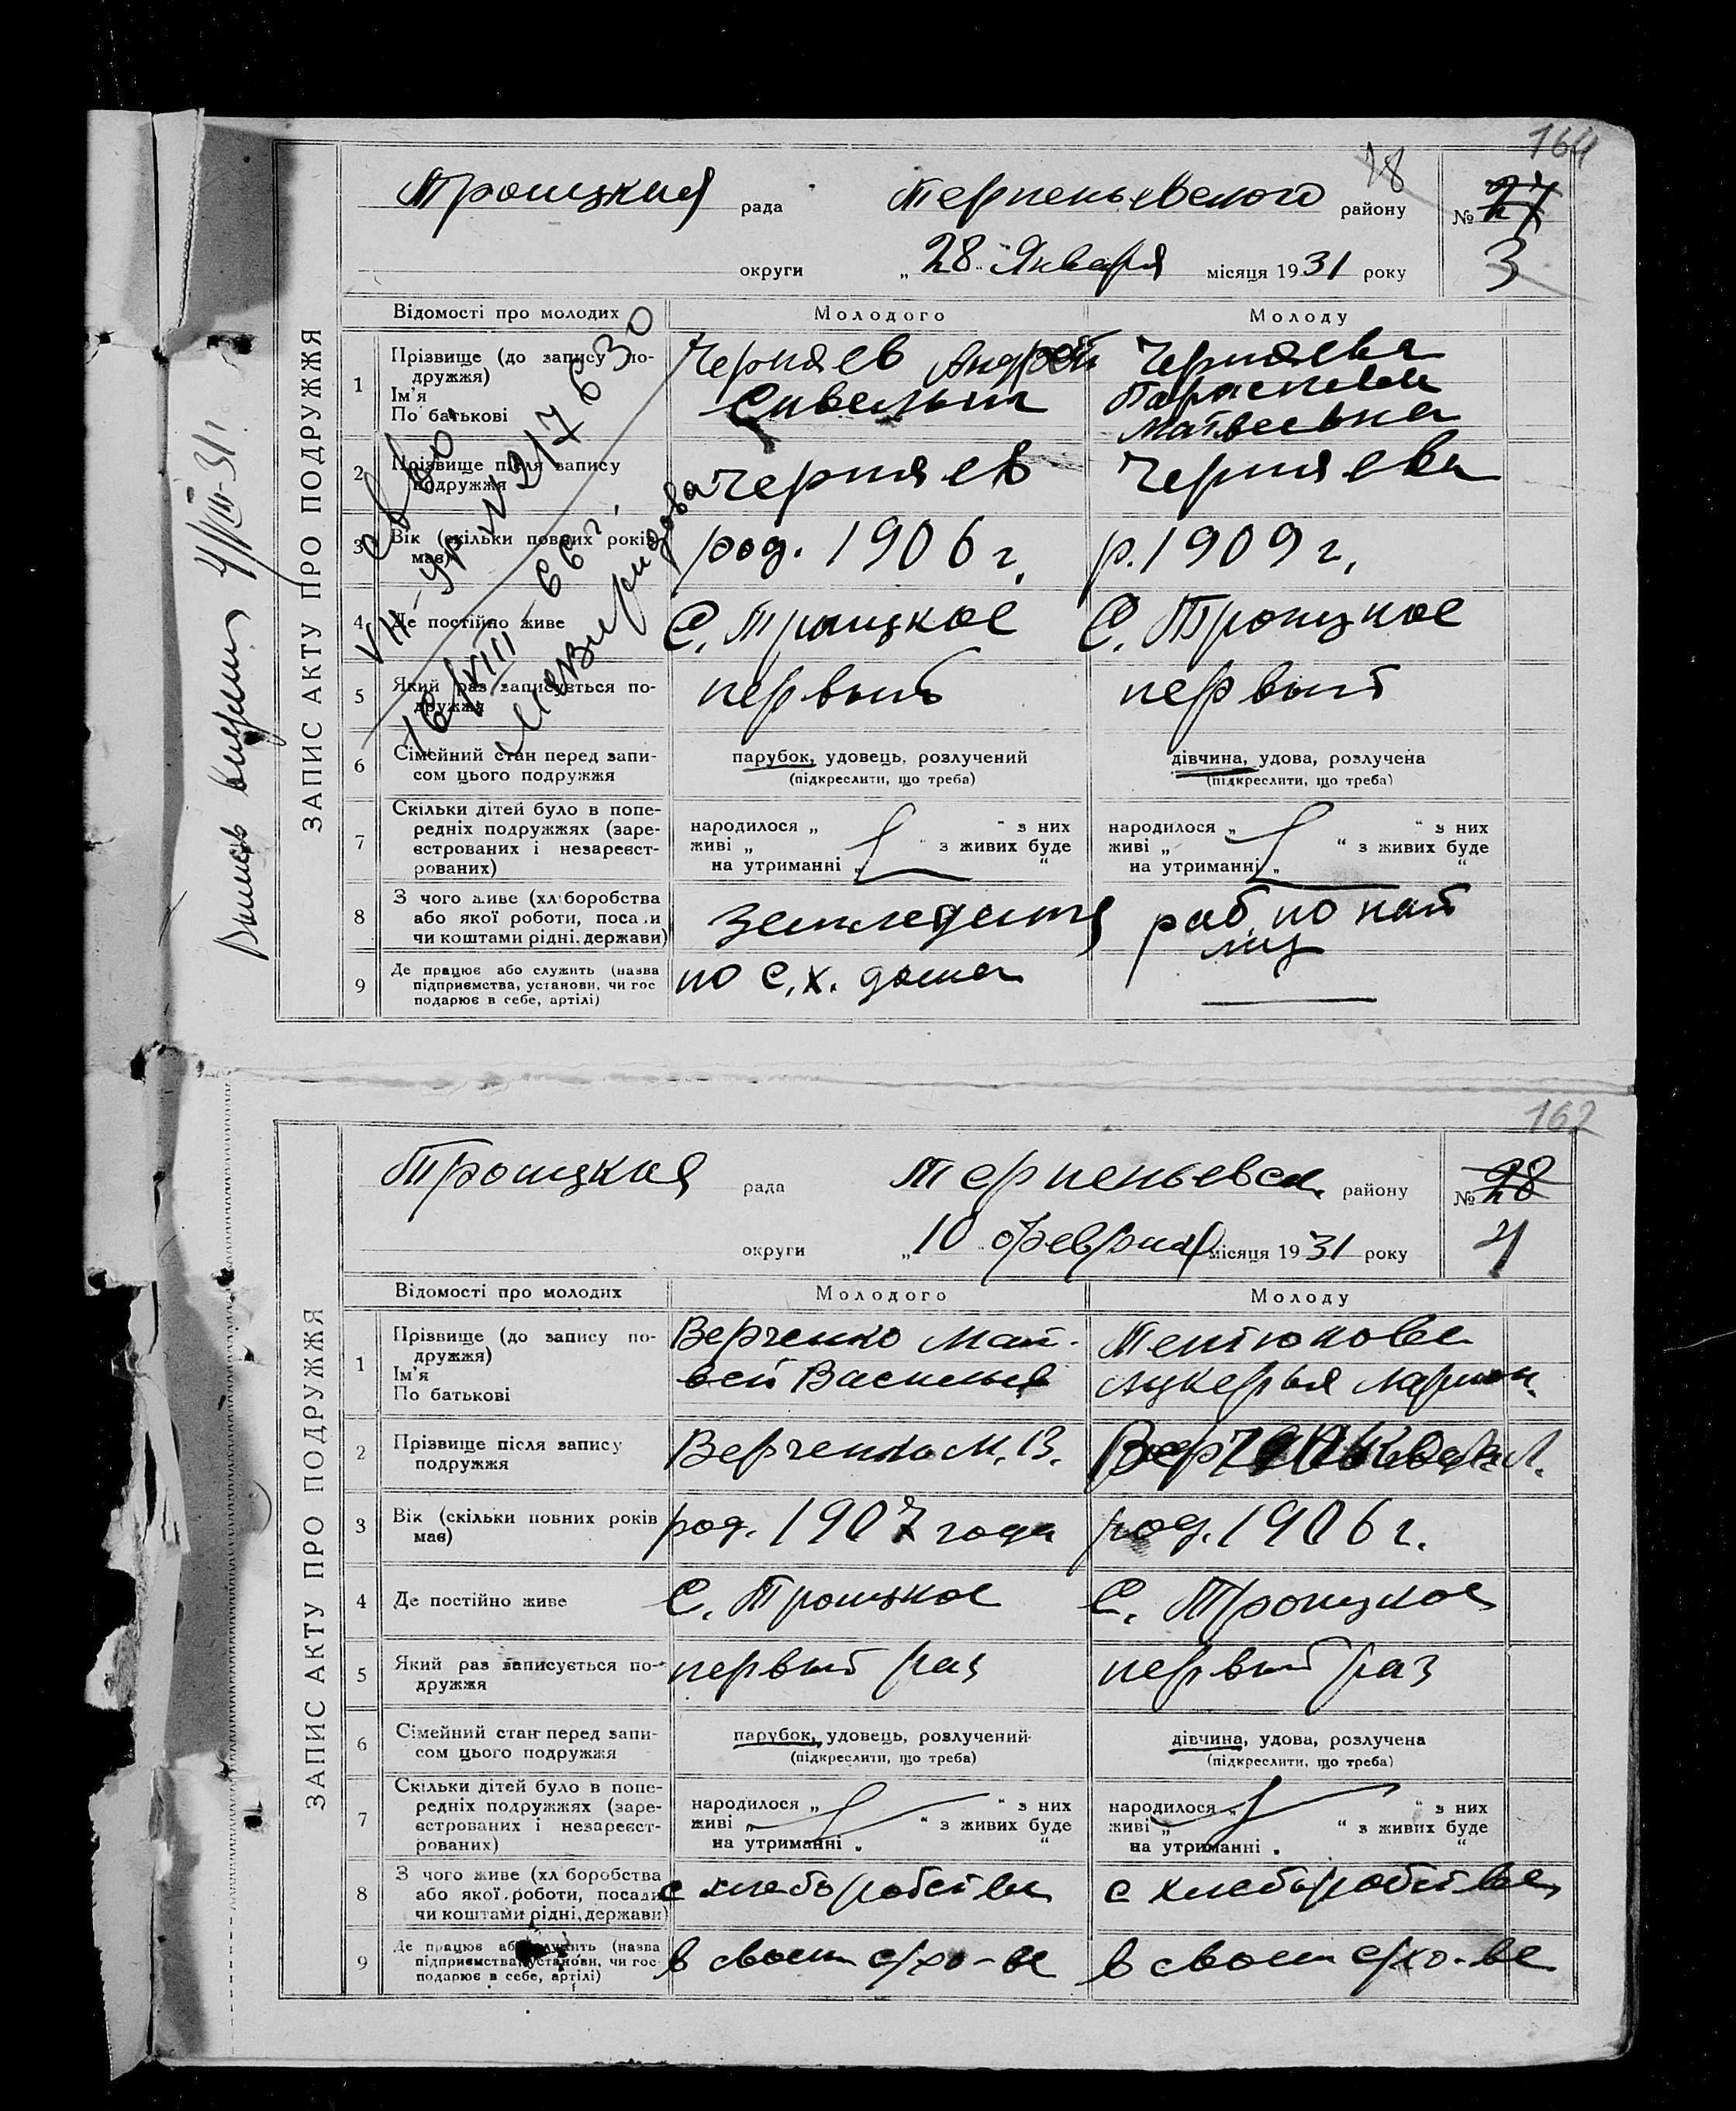 164
18
Троицкая рада Терпеньевского району № 27
3
округи „28" Января місяця 1931 року
ЗАПИС АКТУ ПРО ПОДРУЖЖЯ
Відомості про молодих Молодого Молоду
1 Прізвище (до запису подружжя) Черняев Андрей Черняева
Ім'я Параскева
По батькові Савельич Матвеевна
2 Прізвище після запису Черняев Черняева
подружжя
3 Вік (скільки повних років род. 1906 г. р. 1909 г.
має)
4 Де постійно живе С. Троицкое С. Троицкое
5 Який раз записується по- первый первый
дружжя
6 Сімейний стан перед запи- парубок, удовець, розлучений дівчина, удова, розлучена
сом цього подружжя (підкреслити, що треба) (підкреслити, що треба)
7 Скільки дітей було в попе-
редніх подружжях (заре- народилося „ " з них народилося „ " з них
єстрованих і незареєст- живі „ " з живих буде живі „ " з живих буде
рованих) на утриманні „ " на утриманні „ "
8 З чого живе (хліборобства
або якої роботи, посади земледелия раб. по най
чи коштами рідні, держави) му
9 Де працює або служить (назва по с.х. дома
підприємства, установи, чи гос
подарює в себе, артілі)
16/VIII 66 г.
4/III-31 г.
162
Троицкая рада Терпеньевск. району № 28
4
округи „10" февраля місяця 1931 року
ЗАПИС АКТУ ПРО ПОДРУЖЖЯ
Відомості про молодих Молодого Молоду
1 Прізвище (до запису по- Верченко Мат-
дружжя)
Ім'я вей Васильев Лукерья Ларион.
По батькові
2 Прізвище після запису Верченко М. В.
подружжя
3 Вік (скільки повних років род. 1907 года род. 1906 г.
має)
4 Де постійно живе С. Троицкое С. Троицкое
5 Який раз записується по- первый раз первый раз
дружжя
6 Сімейний стан перед запи- парубок, удовець, розлучений дівчина, удова, розлучена
сом цього подружжя (підкреслити, що треба) (підкреслити, що треба)
7 Скільки дітей було в попе-
редніх подружжях (заре- народилося „ " з них народилося „ " з них
єстрованих і незареєст- живі „ " з живих буде живі „ " з живих буде
рованих) на утриманні „ " на утриманні „ "
8 З чого живе (хліборобства
або якої роботи, посади с хлеборобства с хлеборобства
чи коштами рідні, держави)
9 Де працює або служить (назва в своем с/хо-ве в своем с/хо-ве
підприємства, установи, чи гос
подарює в себе, артілі)